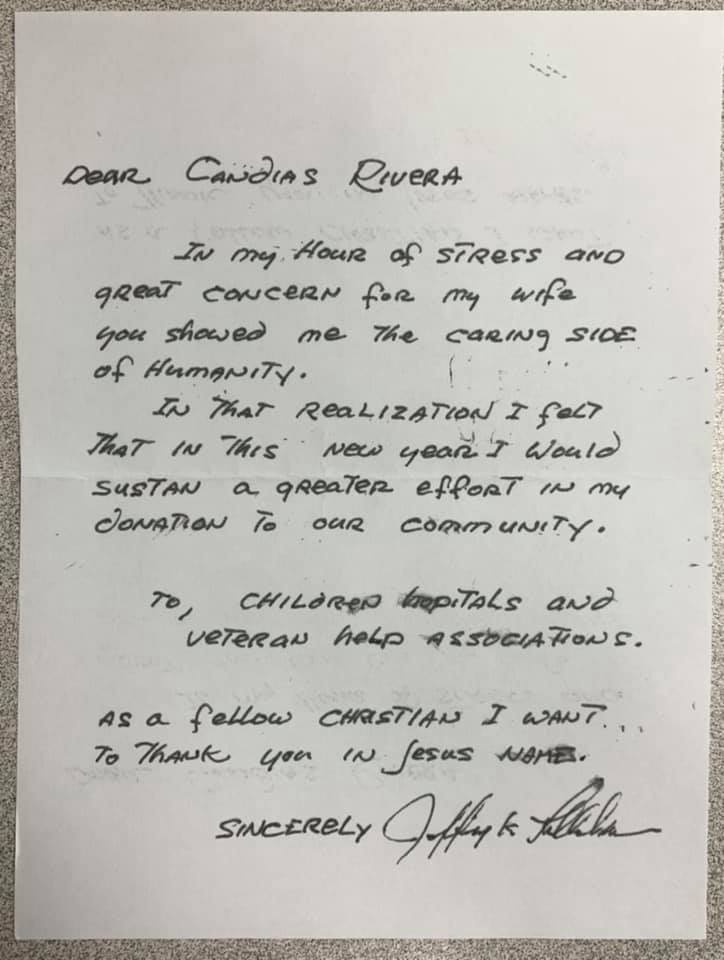 Dear Candias Rivera
In my Hour of stress and
great concern for my wife
you showed me the caring side
of Humanity.
In that realization I felt
that in this new year I would
sustan a greater effort in my
donation to our community.
To, Children hopitals and
veteran help associations.
As a fellow Christian I want
to thank you in Jesus name.
Sincerely Jeffrey K